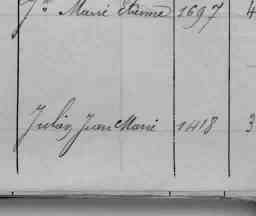 Jn Marie Etienne 1697 4
Julien Jean Marie 1418 3